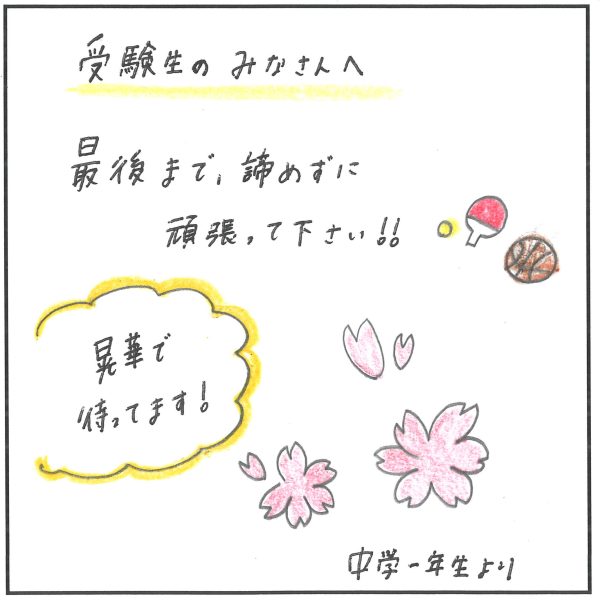 受験生のみなさんへ
最後まで、諦めずに
頑張って下さい!!
晃華で
待ってます!
中学一年生より